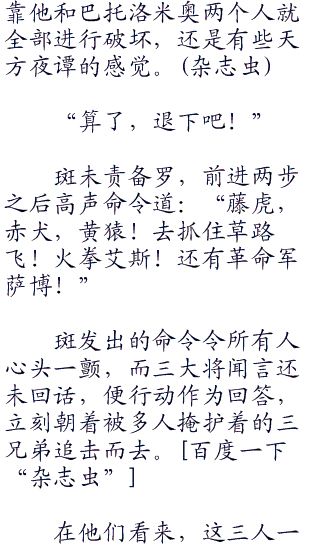 靠他和巴托洛米奥两个人就
全部进行破坏，还是有些天
方夜谭的感觉。(杂志虫)
“算了，退下吧！”
斑未责备罗，前进两步
之后高声命令道：“藤虎，
赤犬，黄猿！去抓住草路
飞！火拳艾斯！还有革命军
萨博！”
斑发出的命令令所有人
心头一颤，而三大将闻言还
未回话，便行动作为回答，
立刻朝着被多人掩护着的三
兄弟追击而去。[百度一下
“杂志虫”]
在他们看来，这三人一